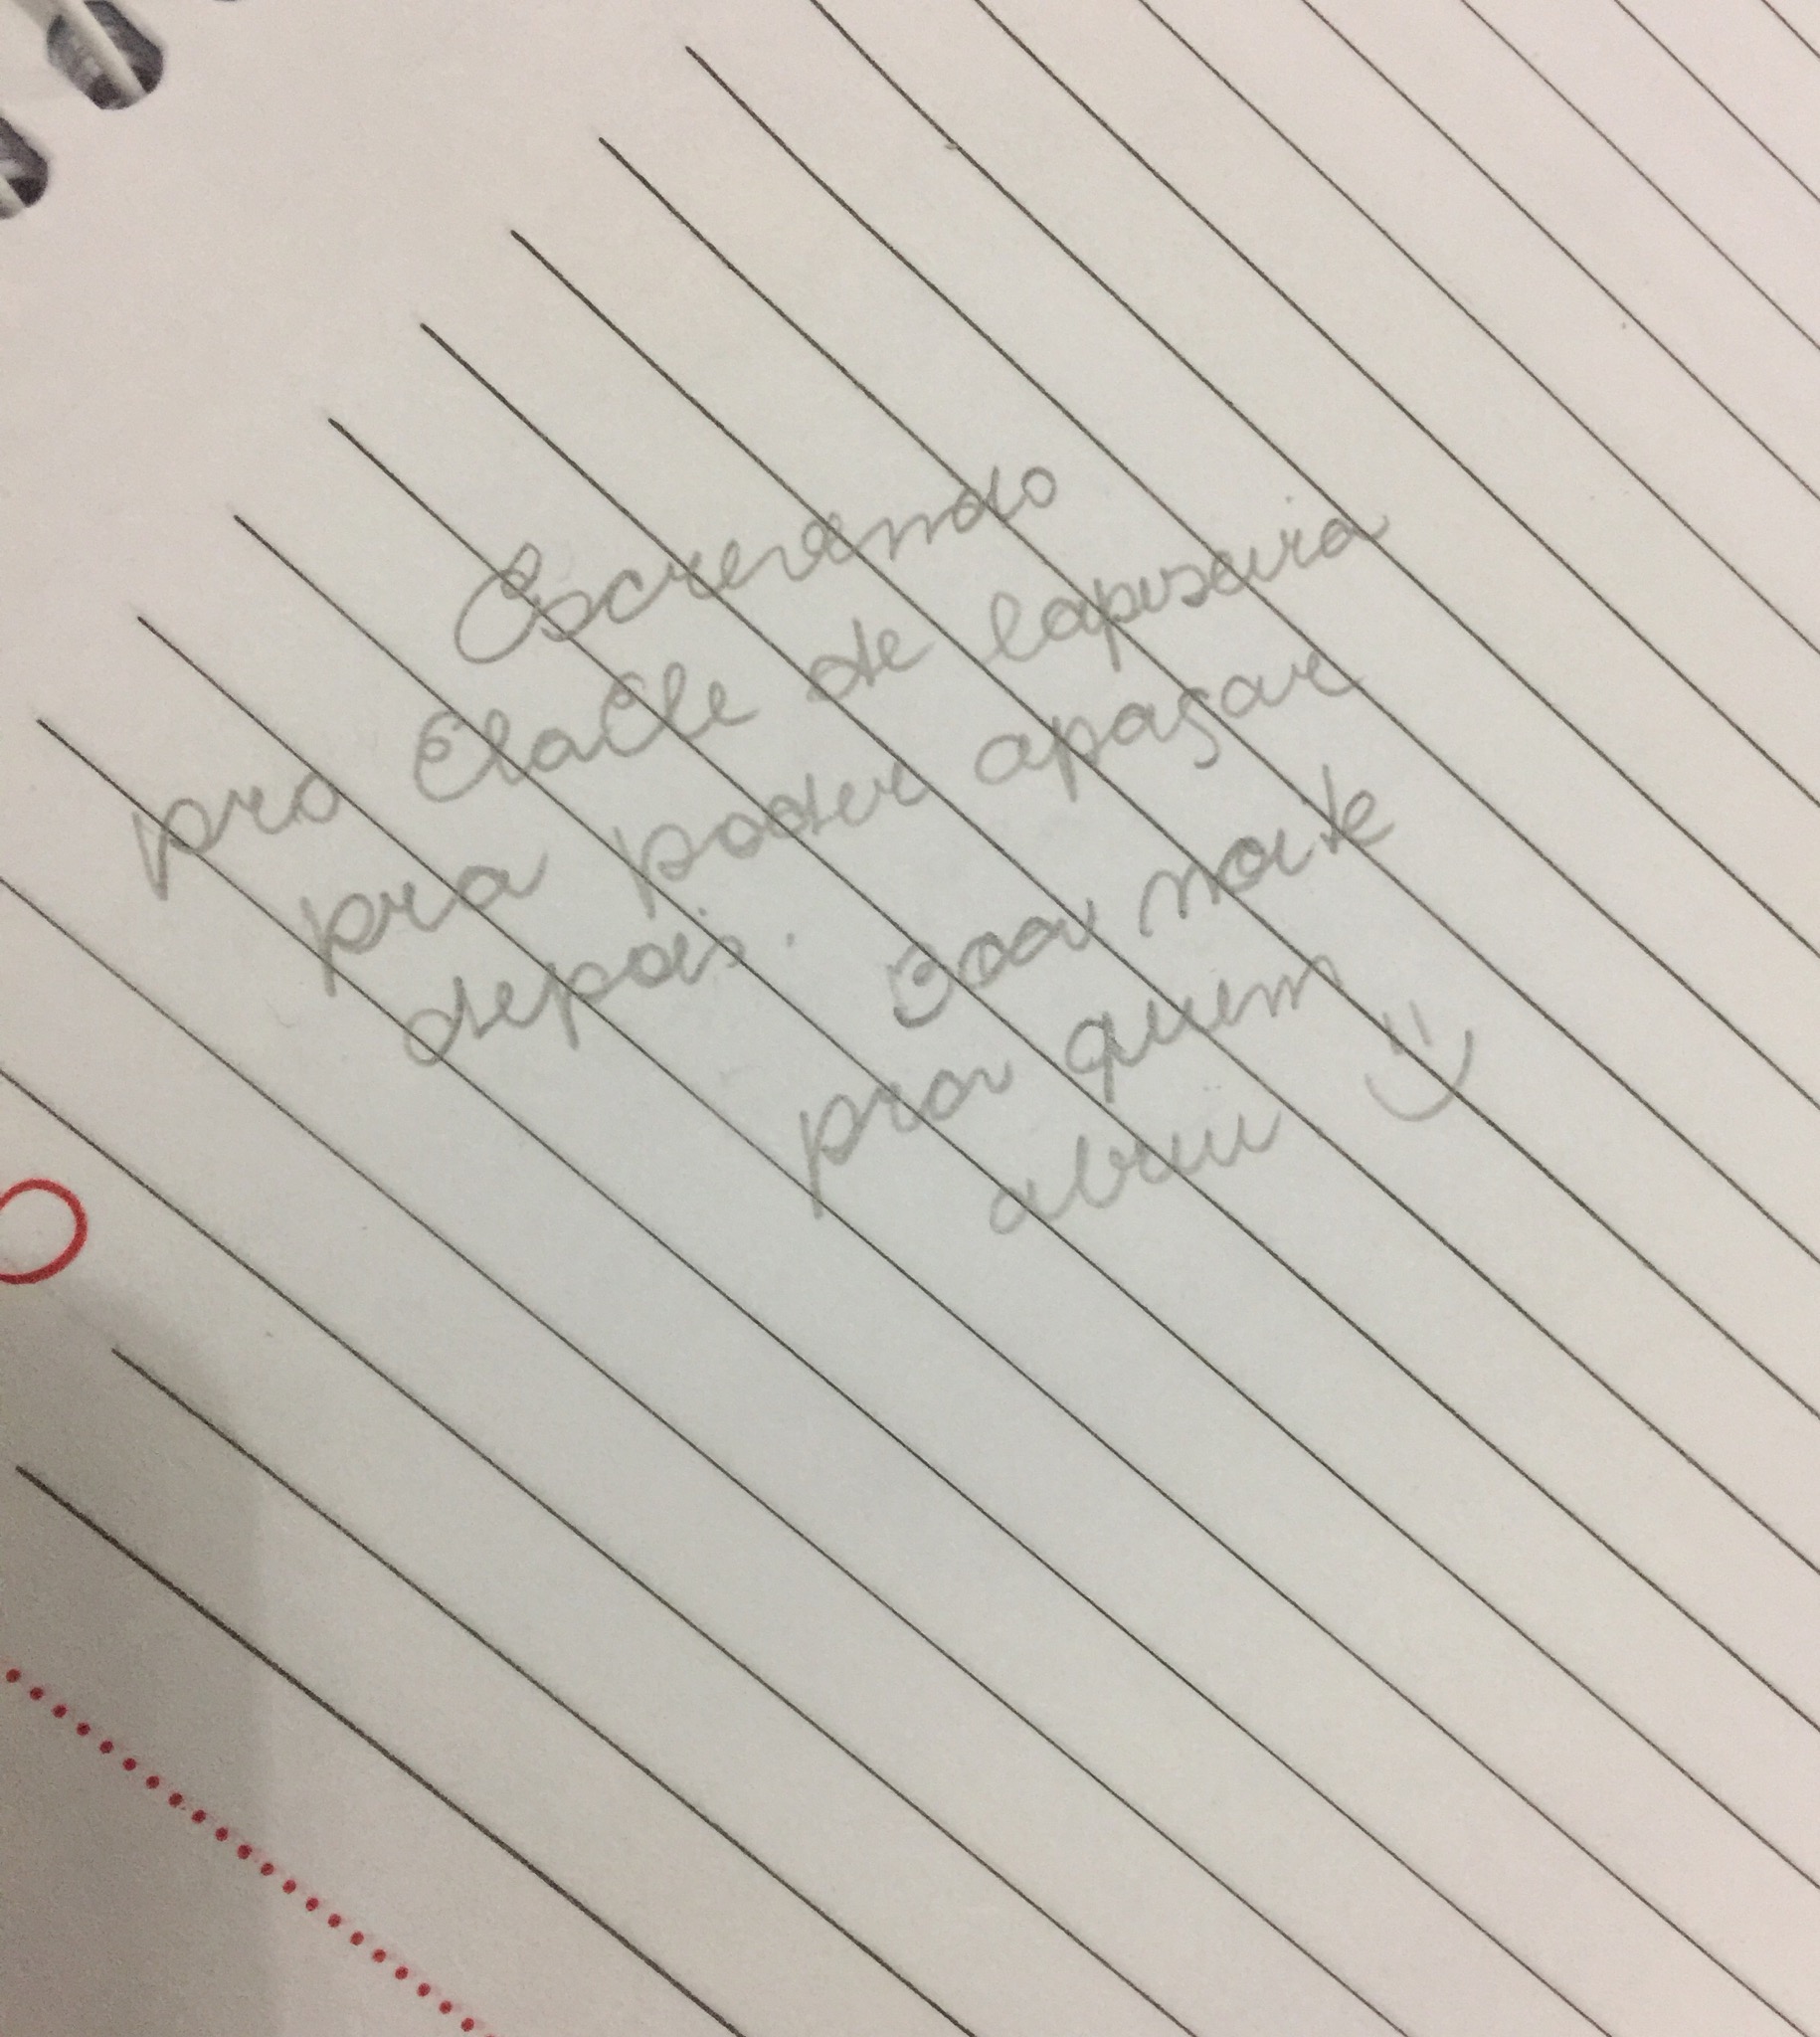 Escrevendo
pro ElaEle de lapiseira
pra poder apagar
depois. Boa noite
pra quem
abriu :)